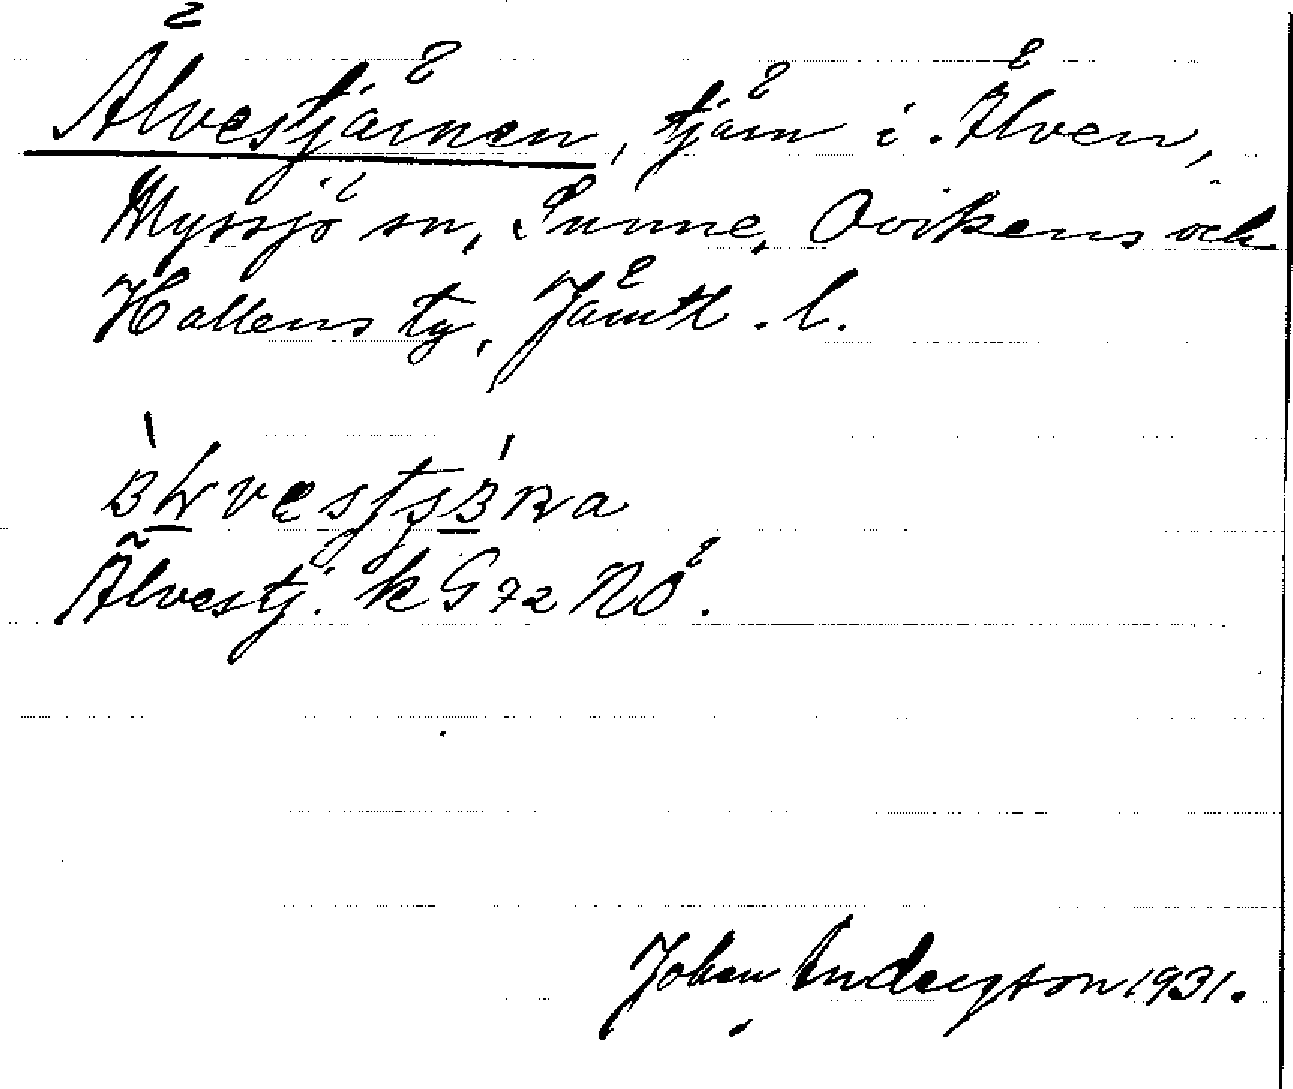 Älvestjärnen, tjärn i Älven,
Myssjö sn, Sunne, Ovikens och
Hallens tg, Jämtl. l.
Älvestj. k G 72 NÖ.
Johan Anderson 1931.